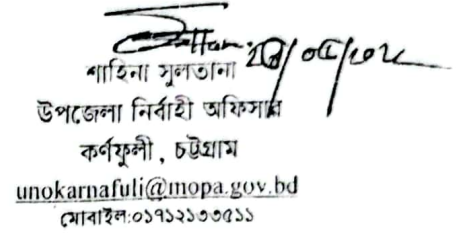 শাহিনা সুলতানা
উপজেলা নির্বাহী অফিসার
কর্ণফুলী, চট্টগ্রাম
unokarnafuli@mopa.gov.bd
মোবাইল:০১৭১২১৩৩৫১১